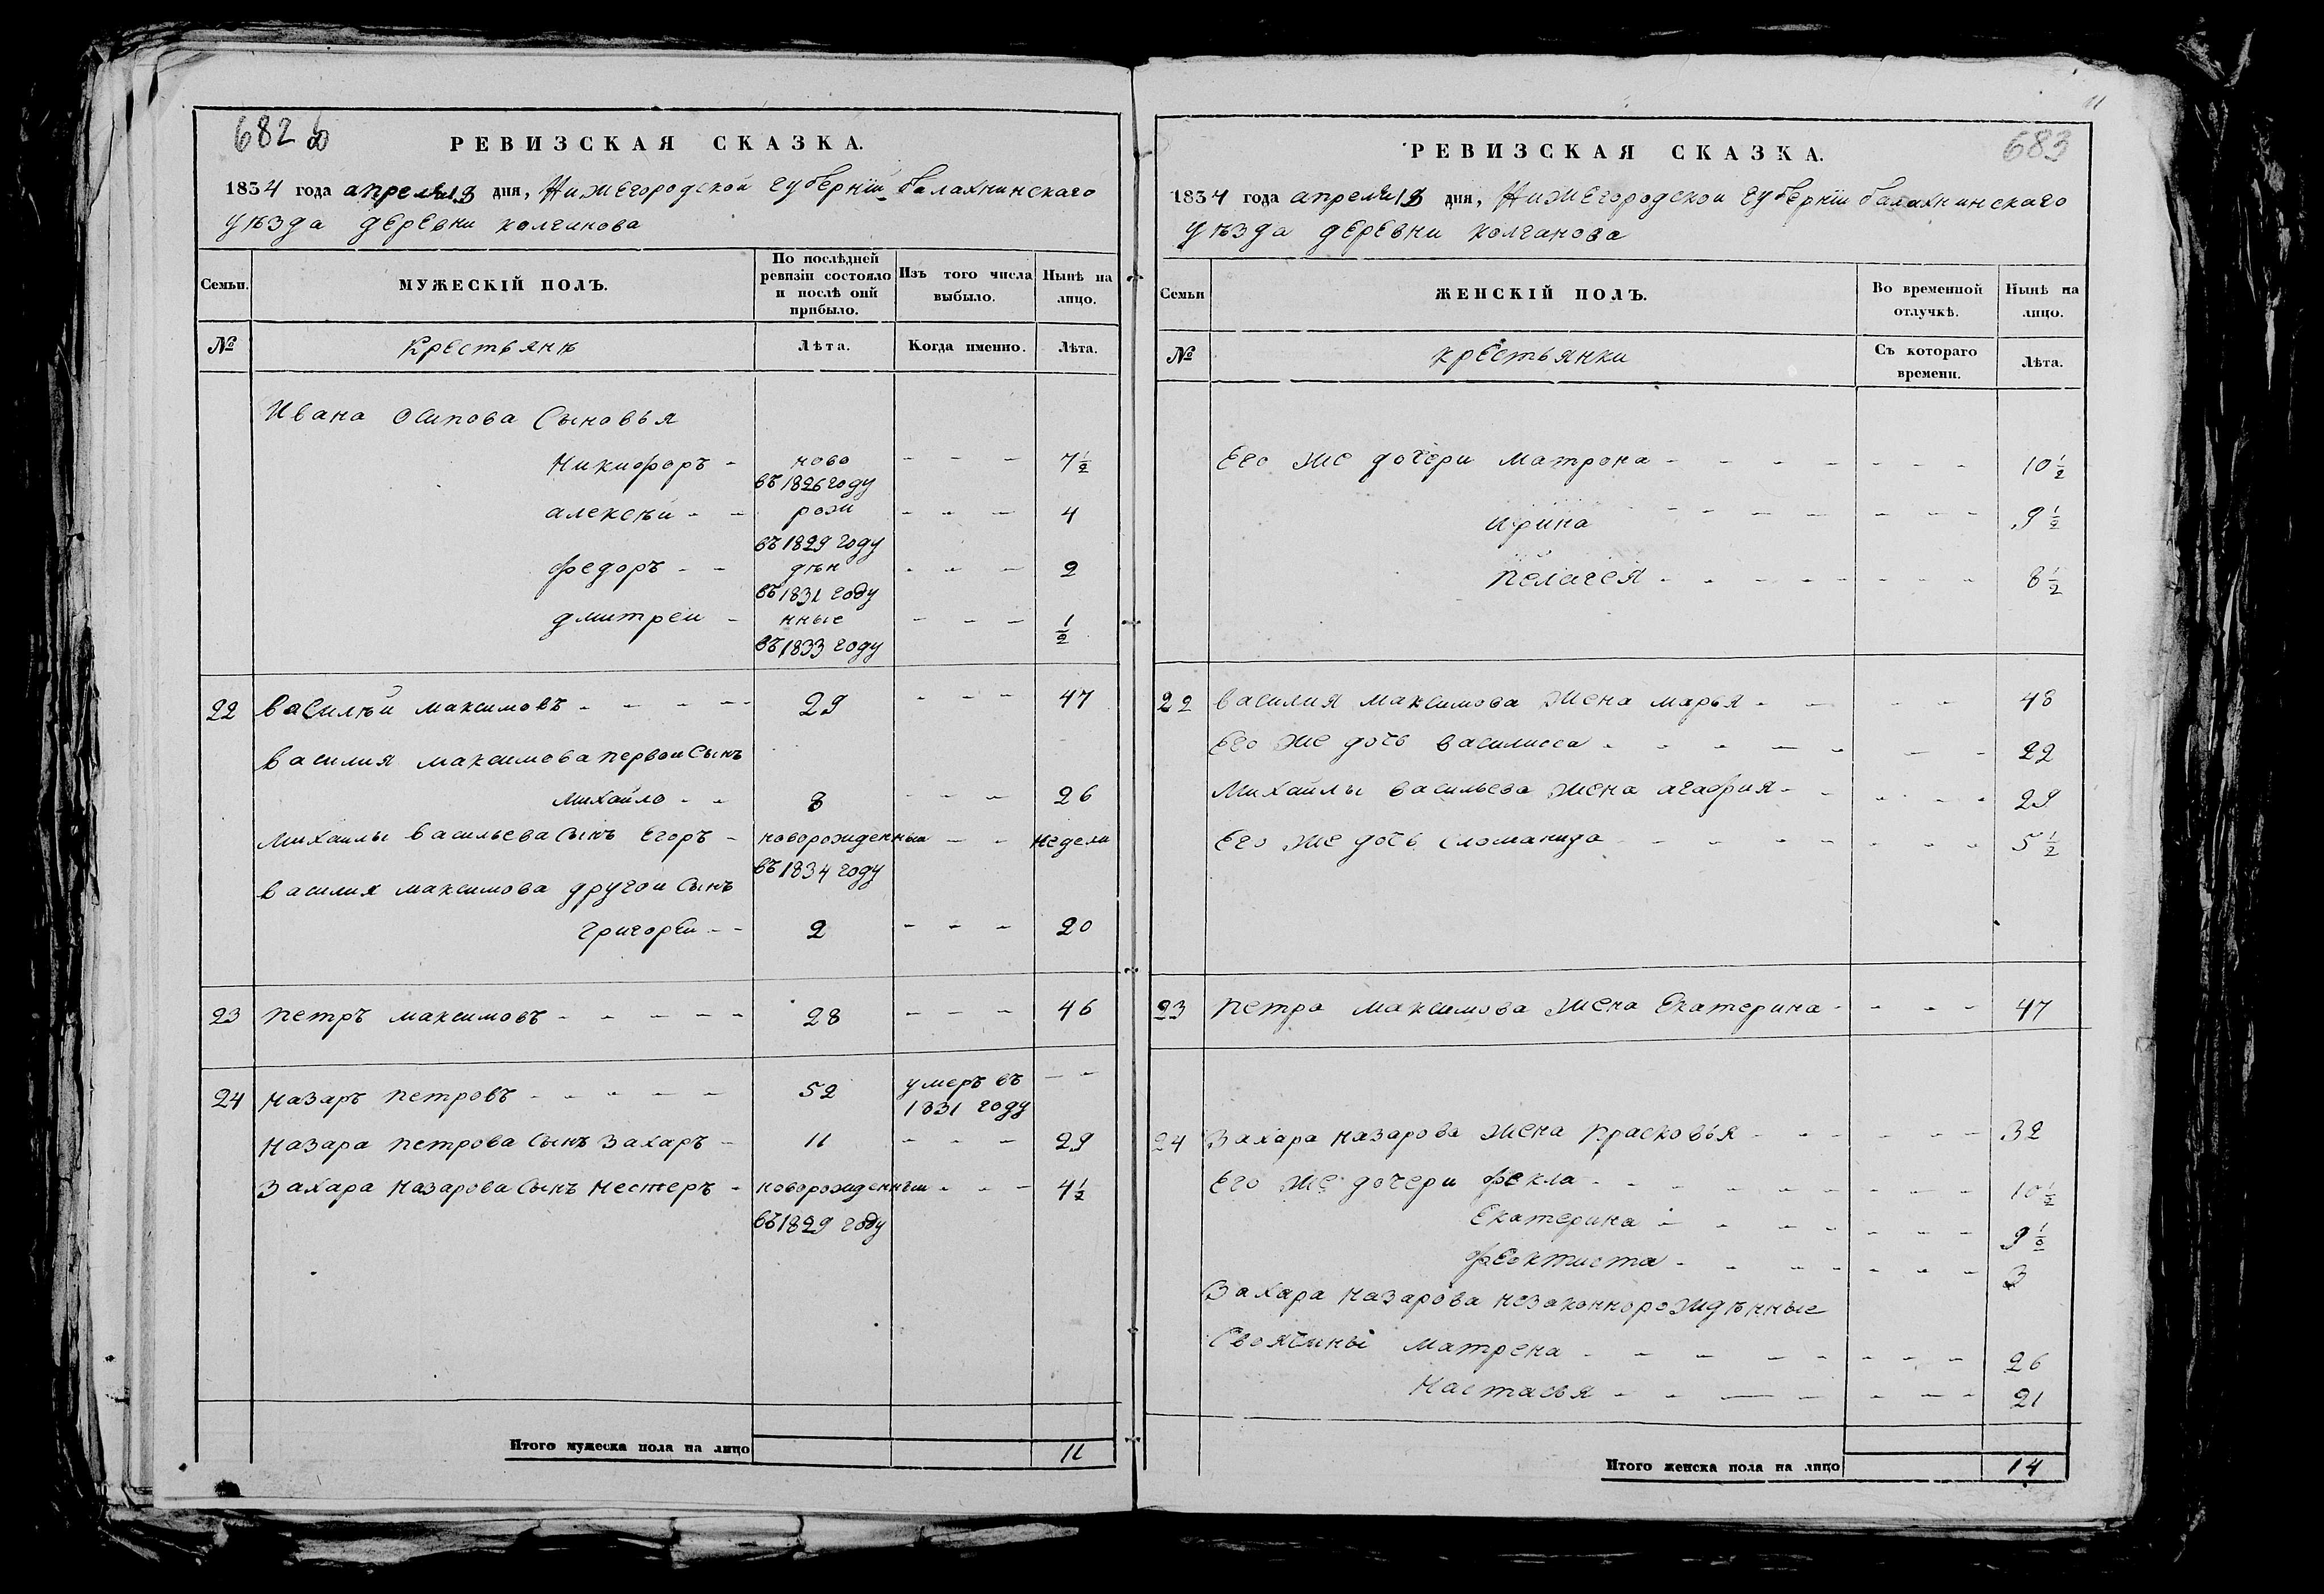 682 об
РЕВИЗСКАЯ СКАЗКА.
1834 года апреля 13 дня, Нижегородской губернии балахнинскаго
уѣзда деревни колчинова
Семьи.
МУЖЕСКІЙ ПОЛЪ.
По послѣдней ревизіи состояло и послѣ оній прибыло.
Изъ того числа выбыло.
Нынѣ на лицо.
№
Крестьянѣ
Лѣта.
Когда именно.
Лѣта.
Ивана Осипова Сыновья
Никифоръ - ново - - - 7 1/2
въ 1826 году
алексѣи - - рож - - - 4
въ 1829 году
федоръ - - дѣн - - - 2
въ 1831 году
дмитреи - нные - - - 1/2
въ 1833 году
22 Василѣй максимовъ - - - - - 29 - - - 47
Василия максимова первои Сынъ
михайло - - 8 - - - 26
михаилы васильева Сынъ Егоръ - новорожденныи - - недели
въ 1834 году
василия максимова другои Сынъ
григореи - - 2 - - - 20
23 петръ максимовъ - - - - - 28 - - - 46
24 назаръ петровъ - - - - - 52 умеръ въ - -
1831 году
назара петрова Сынъ Захаръ - 11 - - - 29
Захара назарова Сынъ нестеръ - новорожденныи - - - 4 1/2
въ 1829 году
Итого мужеска пола на лицо 11
11
683
РЕВИЗСКАЯ СКАЗКА.
1834 года апреля 13 дня, Нижегородскои губерніи балахнинскаго
уѣзда деревни колчанова
Семьи
ЖЕНСКІЙ ПОЛЪ.
Во временной отлучкѣ.
Нынѣ на лицо.
№
крестьянки
Съ котораго времени.
Лѣта.
Его же дочери матрона - - - - - - - - 10 1/2
ирина - - - - - - - - 9 1/2
пелагея - - - - - - - - 8 1/2
22 василия максимова жена марья - - - - 48
Его же дочь василисса - - - - - - - 22
михайлы васильева жена агафия - - - - - 29
Его же дочь сломанида - - - - - - - - 5 1/2
23 петра максимова жена Екатерина - - - - 47
24 Захара назарова жена прасковья - - - - - - - 32
Его же дочери фекла - - - - - - - - - 10 1/2
Екатерина - - - - - - - - 9 1/2
феоктиста - - - - - - - - 3
Захара назарова незаконнорождѣнные
Своячины матрена - - - - - - - - 26
Настасья - - - - - - - 21
Итого женска пола на лицо 14